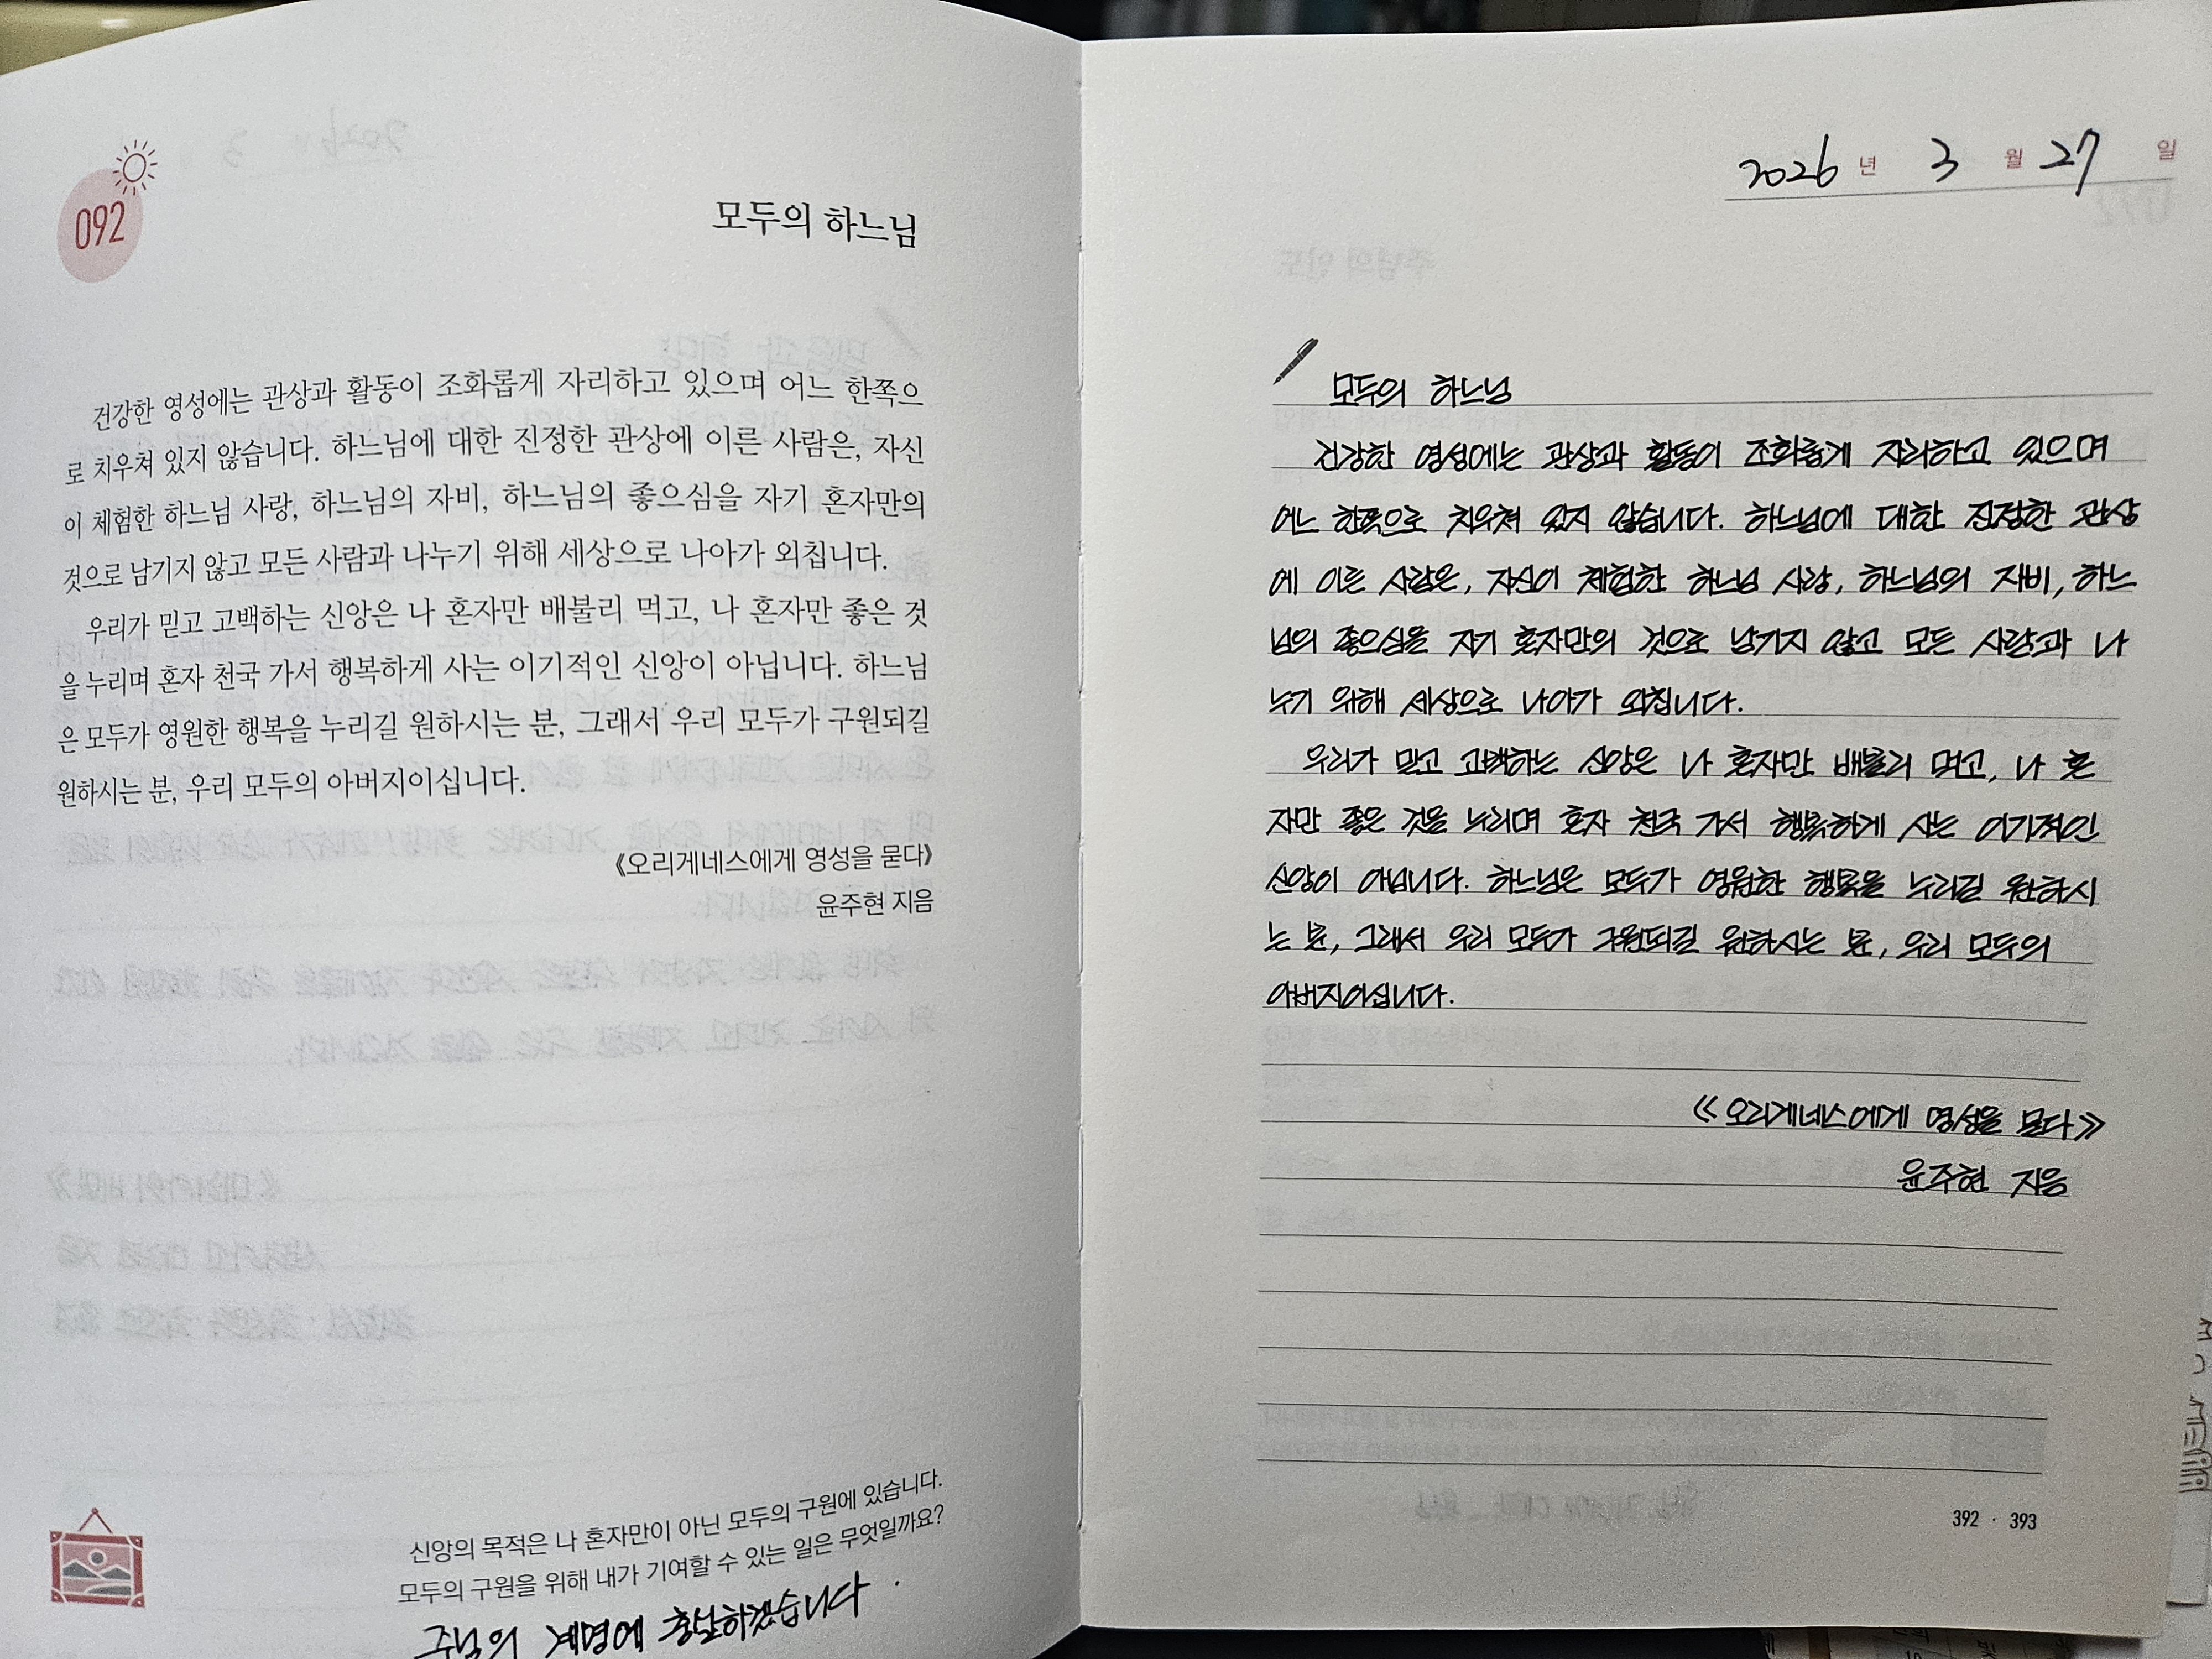 092
모두의 하느님
건강한 영성에는 관상과 활동이 조화롭게 자리하고 있으며 어느 한쪽으
로 치우쳐 있지 않습니다. 하느님에 대한 진정한 관상에 이른 사람은, 자신
이 체험한 하느님 사랑, 하느님의 자비, 하느님의 좋으심을 자기 혼자만의
것으로 남기지 않고 모든 사람과 나누기 위해 세상으로 나아가 외칩니다.
우리가 믿고 고백하는 신앙은 나 혼자만 배불리 먹고, 나 혼자만 좋은 것
을 누리며 혼자 천국 가서 행복하게 사는 이기적인 신앙이 아닙니다. 하느님
은 모두가 영원한 행복을 누리길 원하시는 분, 그래서 우리 모두가 구원되길
원하시는 분, 우리 모두의 아버지이십니다.
《오리게네스에게 영성을 묻다》
윤주현 지음
신앙의 목적은 나 혼자만이 아닌 모두의 구원에 있습니다.
모두의 구원을 위해 내가 기여할 수 있는 일은 무엇일까요?
주님의 계명에 충실하겠습니다.
2026 년 3 월 27 일
모두의 하느님
건강한 영성에는 관상과 활동이 조화롭게 자리하고 있으며
어느 한쪽으로 치우쳐 있지 않습니다. 하느님에 대한 진정한 관상
에 이른 사람은, 자신이 체험한 하느님 사랑, 하느님의 자비, 하느
님의 좋으심을 자기 혼자만의 것으로 남기지 않고 모든 사람과 나
누기 위해 세상으로 나아가 외칩니다.
우리가 믿고 고백하는 신앙은 나 혼자만 배불리 먹고, 나 혼
자만 좋은 것을 누리며 혼자 천국 가서 행복하게 사는 이기적인
신앙이 아닙니다. 하느님은 모두가 영원한 행복을 누리길 원하시
는 분, 그래서 우리 모두가 구원되길 원하시는 분, 우리 모두의
아버지이십니다.
《오리게네스에게 영성을 묻다》
윤주현 지음
392 · 393